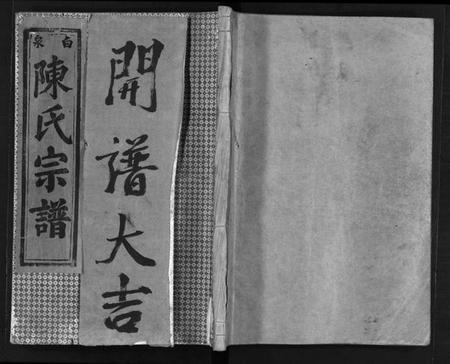 白泉
陳氏宗譜
開譜大吉